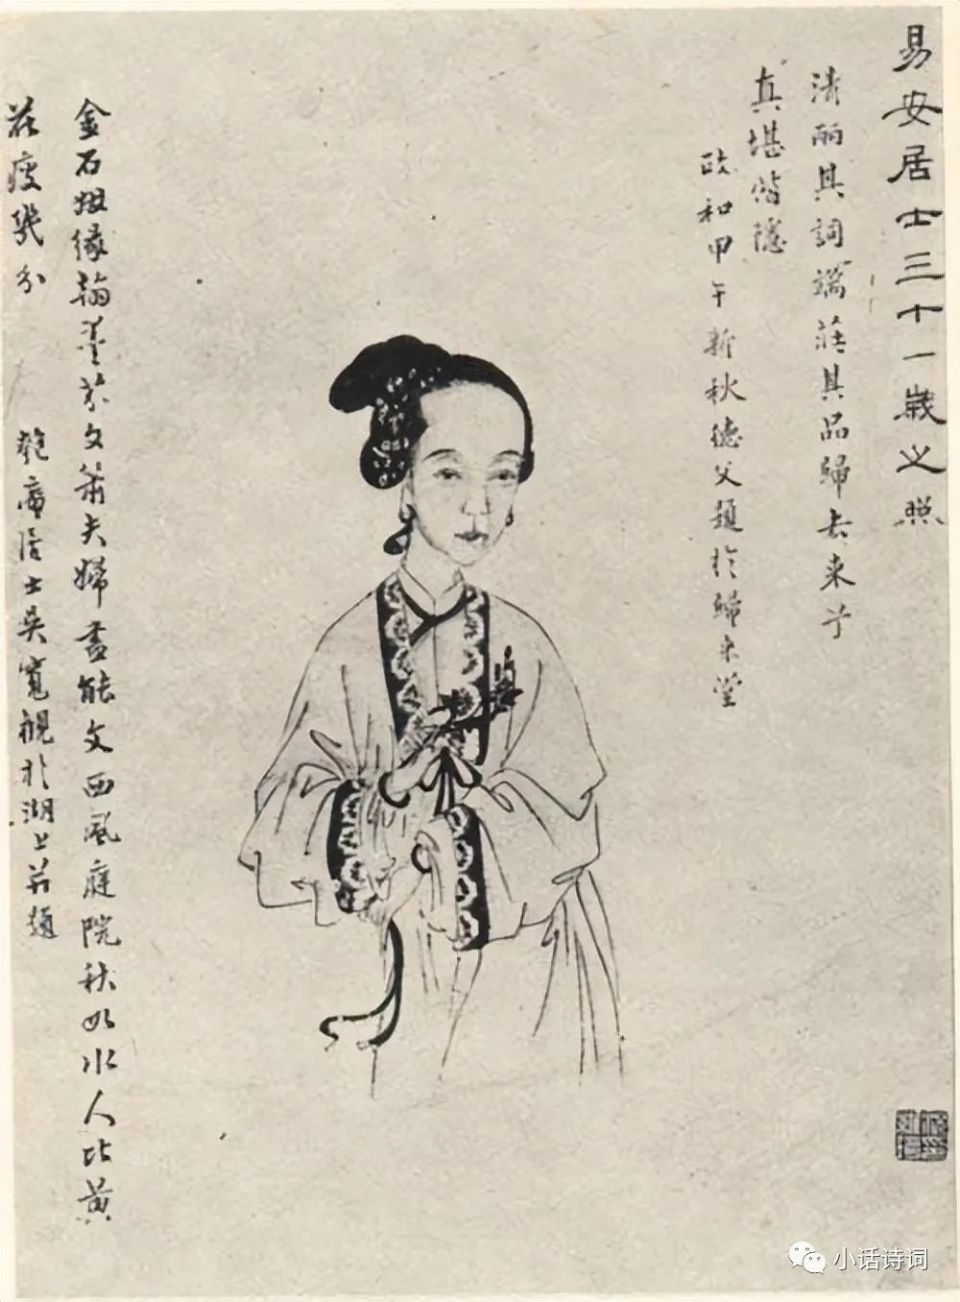 易安居士三十一歲之照
清麗其詞端莊其品歸去來兮
真堪偕隱
政和甲午新秋德父題於歸來堂
金石姻緣翰墨芬文簫夫婦盡能文西風庭院秋如水人比黃
花瘦幾分
匏庵居士吳寬觀於湖上並題
小话诗词